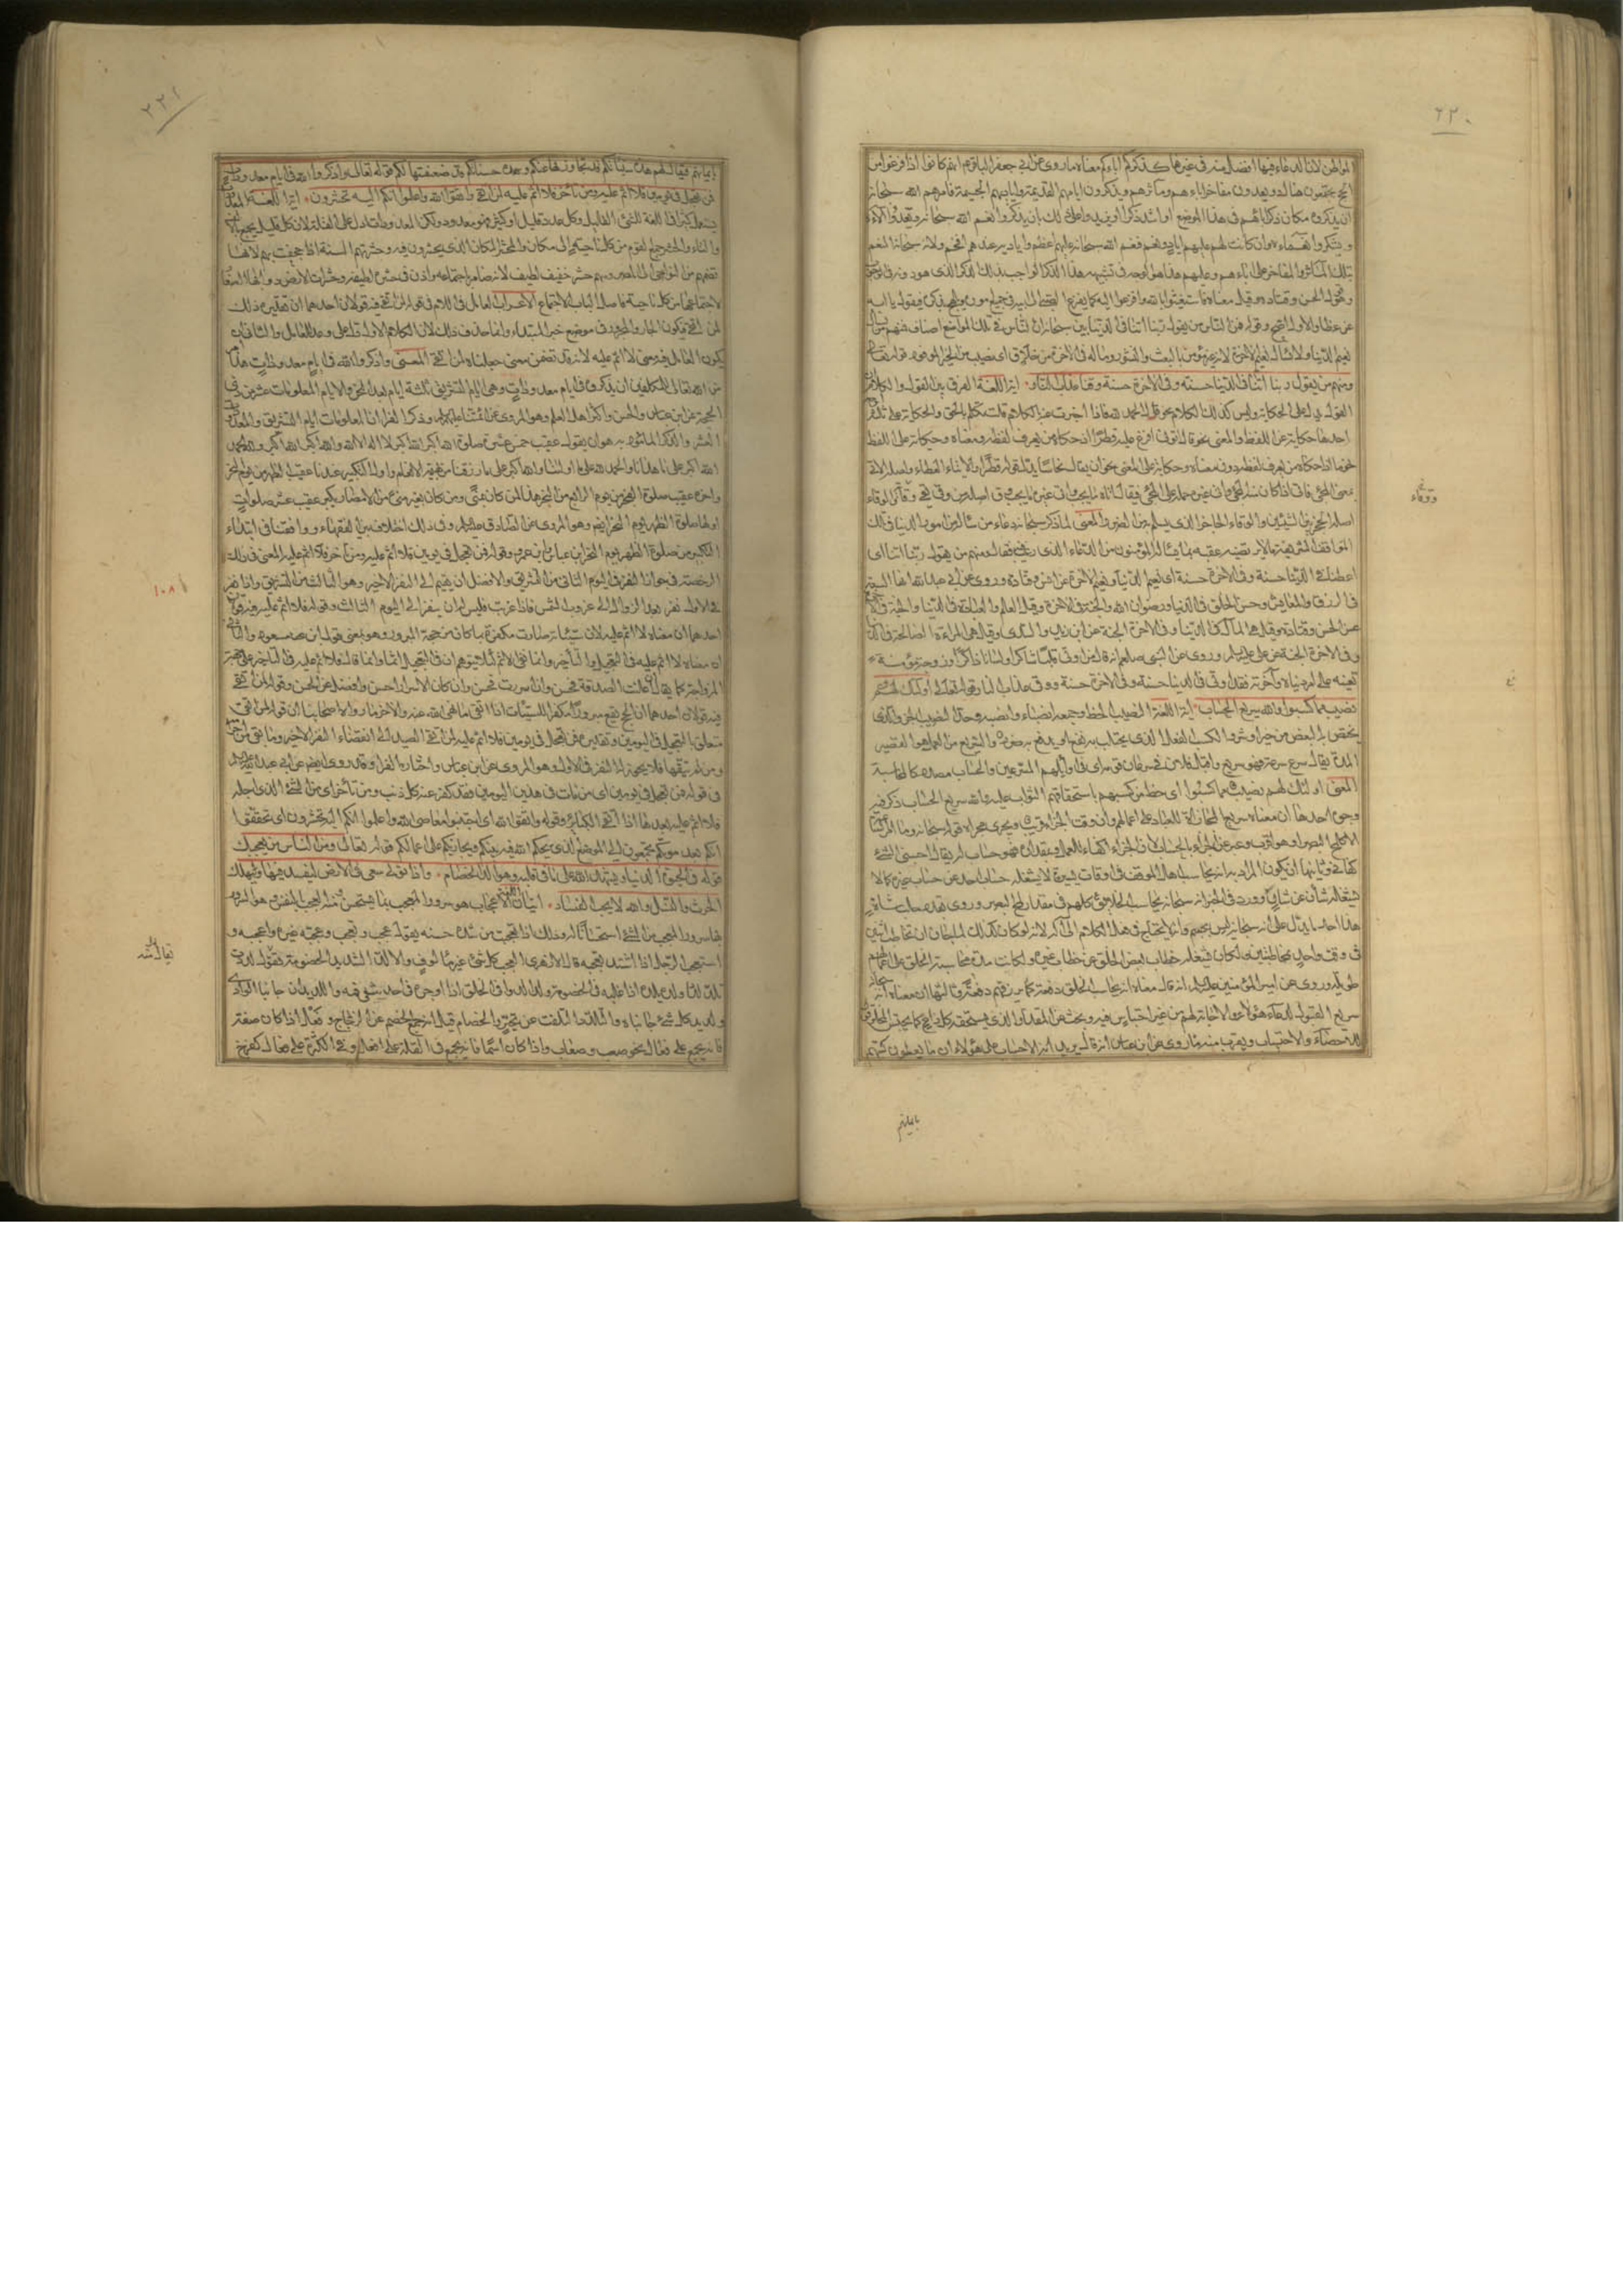 ٢٣٠
المواطن لان الدعاء فيها افضل منه في غيرها كذكركم اباءكم معناه ما روى عن ابي جعفر الباقر انهم كانوا اذا فرغوا من
الحج يجتمعون هناك ويعدون مفاخر اباءهم ومآثرهم ويذكرون ايامهم القديمة واياديهم الجسيمة فامرهم الله سبحانه
ان يذكروه مكان ذكر ابائهم في هذا الموضع او اشد ذكرا او يزيدوا على ذلك بان يذكروا نعم الله سبحانه ويعدوا آلاءه
ويشكروا نعماءه وان كانت لهم عليهم اياد ونعم فنعم الله سبحانه عليهم اعظم واياديه عندهم افخم ولانه سبحانه المنعم
بتلك المآثر والمفاخر على اباءهم وعليهم وهذا هو الوجه في تشبيهه هذا الذكر الواجب بذلك الذكر الذي هو دونه في الوجوب
وهو قول الحسن وقتادة وقيل معناه فاستغيثوا بالله وافزعوا اليه كما يفزع الصبي الى ابيه في جميع اموره ويلهج بذكره فيقول يا ابه
عن عطا والاول اصح وقوله فمن الناس من يقول ربنا اتنا في الدنيا بين سبحانه ان الناس في تلك المواضع اصناف فمنهم من يسأل
نعيم الدنيا ولا يسأل نعيم الاخرة لانه غير مؤمن بالبعث والنشور وماله في الاخرة من خلاق اى نصيب من الخير الموفور قوله تعالى
ومنهم من يقول ربنا اتنا في الدنيا حسنة وفي الاخرة حسنة وقنا عذاب النار ايتر اللغة الفرق بين القول والكلام ان
القول يدل على الحكاية وليس كذلك الكلام نحو قال الحمد لله فاذا اخبرت عنه بالكلام قلت تكلم بالحق والحكاية على ثلثة اوجه
احدها حكاية على اللفظ والمعنى نحو قال اتوني افرغ عليه قطرا اذا حكاه من يعرف لفظه ومعناه وحكاية على اللفظ
نحو ما اذا حكاه من يعرف لفظه دون معناه وحكاية على المعنى نحو ان يقال نحاسا بدل قوله قطرا والايتاء الاعطاء
اصله الحجز بين الشيئين والوقاء الحاجز الذي يسلم به من الضرر المعنى لما ذكر سبحانه دعاء من سأله من امور الدنيا في تلك
المواقف الشريفة ما لا يرتضيه عقبه بما سأله المؤمنون من الدعاء الذي يرغب فيه فقال ومنهم من يقول ربنا اتنا اى
اعطنا في الدنيا حسنة وفي الاخرة حسنة اى نعيم الدنيا ونعيم الاخرة عن انس وقتادة وروى عن ابي عبد الله انها السعة
في الرزق والمعاش وحسن الخلق في الدنيا ورضوان الله والجنة في الاخرة وقيل العلم والعبادة في الدنيا والجنة في الاخرة
عن الحسن وقتادة وقيل هي المال في الدنيا وفي الاخرة الجنة عن ابن زيد والسدى وقيل هي المراءة الصالحة في الدنيا
وفي الاخرة الجنة عن على عليه السلام وروى عن النبى صلعم انه قال من اوتى قلبا شاكرا ولسانا ذاكرا وزوجة مؤمنة
تعينه على امر دنياه وآخرته فقد اوتى في الدنيا حسنة وفي الاخرة حسنة ووقى عذاب النار قوله تعالى اولئك لهم
نصيب مما كسبوا والله سريع الحساب ايتر اللغة النصيب الحظ وجمعه انصباء وانصبة وحد النصيب الجزء الذى
يختص به البعض من خير او شر والكسب الفعل الذى يجتلب به نفع او يدفع به ضرر والسريع من العمل هو القصير
المدة يقال سرع سرعة فهو سريع واقبل فلان في سرعان قومه اى في اوائلهم المتسرعين والحساب مصدر كالمحاسبة
المعنى اولئك لهم نصيب مما كسبوا اى حظ من كسبهم باستحقاقهم الثواب عليه والله سريع الحساب ذكر فيه
وجوه احدها ان معناه سريع المجازاة للعباد على اعمالهم وان وقت الجزاء قريب ويجرى مجراه قوله سبحانه وما امر الساعة
الا كلمح البصر او هو اقرب وعبر عن الجزاء بالحساب لان الجزاء كفاء للعمل وبمقداره فهو حساب له يقال احسبنى الشئ
كفانى وثانيها ان يكون المراد به انه يحاسب اهل الموقف في اوقات يسيرة لا يشغله حساب احد عن حساب غيره كما لا
يشغله شأن عن شأن وورد في الخبر انه سبحانه يحاسب الخلايق كلهم في مقدار لمح البصر وروى بقدر حلب شاة
هذا احد ما يدل على انه سبحانه ليس بجسم وانه لا يحتاج في فعل الكلام الى آلة لانه لو كان كذلك لما جاز ان يخاطب اثنين
في وقت واحد بمخاطبتين ولكان يشغله خطاب بعض الخلق عن خطاب غيره ولكانت مدة محاسبة الخلق على اعمالهم
طويلة وروى عن امير المؤمنين عليه السلام انه قال معناه انه يحاسب الخلق دفعة كما يرزقهم دفعة وثالثها ان معناه انه سبحانه
سريع القبول لدعاء هؤلاء والاجابة لهم من غير احتباس فيه وبحث عن المقدار الذى يستحقه كل داع كما يحتبس المخلوقون
للاحصاء والاحتساب ويقرب منه ما روى عن ابن عباس انه قال يريد انه لا حساب على هؤلاء انما يعطون كتبهم
ووقاء
بايمانهم
٢٣١
بايمانهم فيقال لهم هذه سيئاتكم قد تجاوزت بها عنكم وهذه حسناتكم قد ضعفتها لكم قوله تعالى واذكروا الله في ايام معدودات
فمن تعجل في يومين فلا اثم عليه ومن تأخر فلا اثم عليه لمن اتقى واتقوا الله واعلموا انكم اليه تحشرون ايتر اللغة المعدودات
يستعمل كثيرا في اللغة للشئ القليل وكل عدد قليل او كثير فهو معدود ولكن المعدودات ادل على القلة لان كل قليل يجمع بالالف
والتاء والحشر جمع القوم من كل ناحية الى مكان والمحشر المكان الذى يحشرون فيه وحشرتهم السنة اذا اجحفت بهم لانها
لاجتماعها من كل ناحية فاصل الباب الاجتماع الاعراب العامل في اللام في قوله لمن اتقى فيه قولان احدهما ان تقديره ذلك
لمن اتقى فيكون الجار والمجرور في موضع خبر المبتداء وانما حذف ذلك لان الكلام الاول قد دل على وعد للعامل والثانى ان
يكون العامل فيه معنى لا اثم عليه لانه قد تضمن معنى جعلناه لمن اتقى المعنى واذكروا الله في ايام معدودات هذا
من الله تعالى للمكلفين ان يذكروه في ايام معدودات وهى ايام التشريق ثلثة ايام بعد النحر والايام المعلومات عشر ذى
الحجة عن ابن عباس والحسن واكثر اهل العلم وهو المروى عن ائمتنا عليهم السلام وذكر الفراء ان المعلومات ايام التشريق والمعدودات
العشر والذكر المأمور به هو ان يقول عقيب خمس عشرة صلوة الله اكبر الله اكبر لا اله الا الله والله اكبر الله اكبر ولله الحمد
الله اكبر على ما هدانا والحمد لله على ما اولانا والله اكبر على ما رزقنا من بهيمة الانعام واول التكبير عندنا عقيب الظهر من يوم النحر
واخره عقيب صلوة الفجر من يوم الرابع من النحر هذا لمن كان بمنى ومن كان بغير منى من الامصار يكبر عقيب عشر صلوات
اولها صلوة الظهر يوم النحر ايضا وهو المروى عن الصادق عليه السلام وفي ذلك اختلاف بين الفقهاء ووافقنا في ابتداء
التكبير من صلوة الظهر يوم النحر ابن عباس وابن عمر وقوله فمن تعجل في يومين فلا اثم عليه ومن تأخر فلا اثم عليه المعنى في ذلك
الرخصة في جواز النفر في اليوم الثانى من التشريق والافضل ان يقيم الى النفر الاخير وهو الثالث من التشريق واذا نفر
في الاول نفر بعد الزوال الى غروب الشمس فاذا غربت فليس له ان ينفر الى اليوم الثالث وقوله فلا اثم عليه فيه قولان
احدهما ان معناه لا اثم عليه لان سيئاته صارت مكفرة بما كان من حجه المبرور وهو معنى قول ابن مسعود والثانى
ان معناه لا اثم عليه في التعجيل والتأخير وانما نفى الاثم لئلا يتوهم ان في التعجيل اثما وانما قال فلا اثم عليه في التأخر على جهة
المزاوجة كما يقال ان اعلنت الصدقة فحسن وان اسررت فحسن وان كان الاسرار احسن وافضل عن الحسن وقوله لمن اتقى
فيه قولان احدهما ان الحج يقع مبرورا مكفرا للسيئات اذا اتقى ما نهى الله عنه والاخر ما رواه اصحابنا ان قوله لمن اتقى
متعلق بالتعجيل في اليومين وتقديره فمن تعجل في يومين فلا اثم عليه لمن اتقى الصيد الى انقضاء النفر الاخير وما بقى من احرامه
ومن لم يتقها فلا يجوز له النفر في الاول وهو المروى عن ابن عباس واختاره الفراء وقد روى ايضا عن ابي عبد الله عليه السلام
في قوله فمن تعجل في يومين اى من مات في هذين اليومين فقد كفر عنه كل ذنب ومن تأخر اى من انسئ اجله
فلا اثم عليه بعدها اذا اتقى الكبائر وقوله واتقوا الله اى اجتنبوا معاصى الله واعلموا انكم اليه تحشرون اى تحققوا
انكم بعد موتكم تجمعون الى الموضع الذى يحكم الله فيه بينكم ويجازيكم على اعمالكم قوله تعالى ومن الناس من يعجبك
قوله في الحيوة الدنيا ويشهد الله على ما في قلبه وهو الد الخصام واذا تولى سعى في الارض ليفسد فيها ويهلك
الحرث والنسل والله لا يحب الفساد ايتان اللغة الاعجاب هو سرور المعجب بما يستحسن ومنه العجب بالنفس وهو السرور
بها سرور المعجب من الشئ استحسانا له وذلك اذا تعجبت من شدة حسنه يقول عجب وتعجب وعجبه غيره واعجبه و
استعجب الرجل اذا اشتد تعجبه قال الازهرى العجب كل شئ غير مألوف والالد الشديد الخصومة تقول لد
يلد لدا ولده يلده اذا غلبه في الخصومة ولد الدواء في الحلق اذا اوجره في احد شقى فمه واللديدان جانبا الوادى
ولديدا كل شئ جانباه والتلدد التلفت عن تحير والخصام قيل انه جمع الخصم عن الزجاج وفعل اذا كان صفة
فانه يجمع على فعال نحو صعب وصعاب واذا كان اسما فانه يجمع في القلة على افعل وفي الكثرة على فعال كفرخ
١٠٨